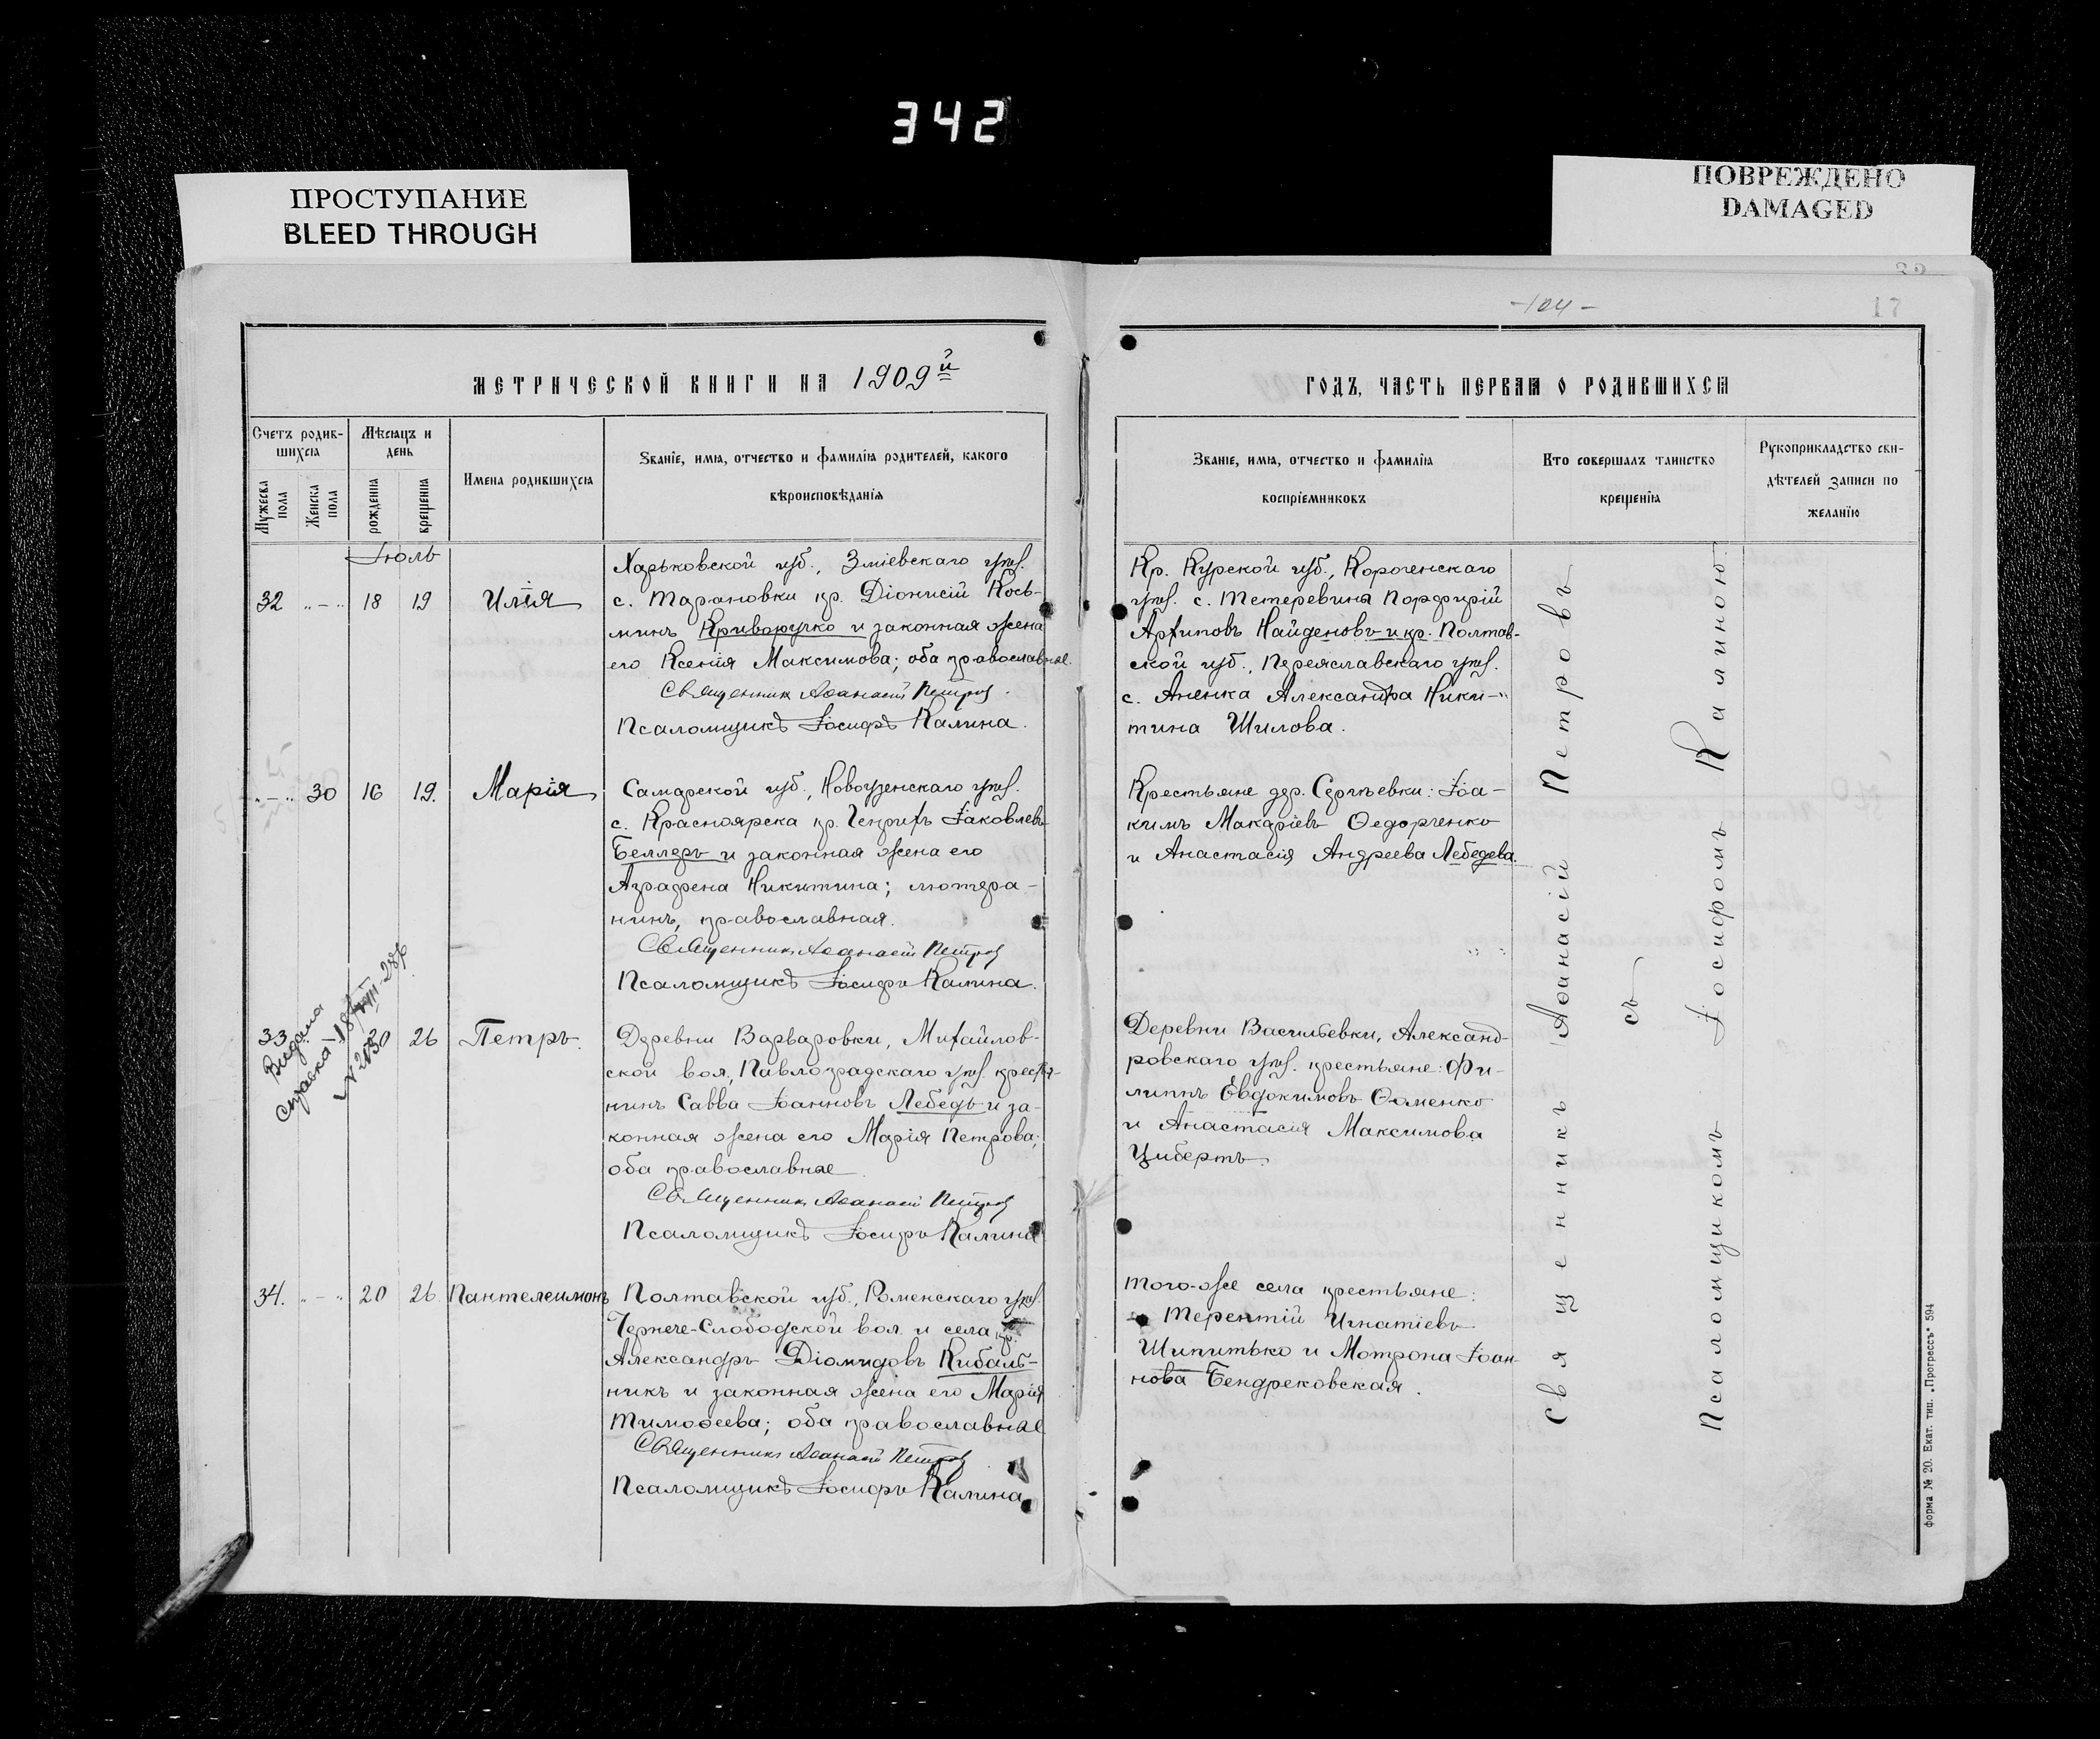 342
ПРОСТУПАНИЕ
BLEED THROUGH
ПОВРЕЖДЕНО
DAMAGED
17
МЕТРИЧЕСКОЙ КНИГИ НА 1909й
Счетъ родив-
шихся
Мѣсяцъ и
день
Мужеска
пола
Женска
пола
рожденія
крещенія
Имена родившихся
Званіе, имя, отчество и фамилія родителей, какого
вѣроисповѣданія
Іюль
32 „-„ 18 19 Илія
Харьковской губ., Зміевскаго уѣз.
с. Тарановки кр. Діонисій Кось-
минъ Криворучко и законная жена
его Ксенія Максимова; оба православные.
Священникъ Аѳанасій Петровъ.
Псаломщикъ Іосифъ Калина.
„-„ 30 16 19. Марія
Самарской губ., Новоузенскаго уѣз.
с. Красноярска кр. Генрихъ Іаковлевъ
Беллеръ и законная жена его
Аграфена Никитина; лютера-
нинъ, православная.
Священникъ Аѳанасій Петровъ
Псаломщикъ Іосифъ Калина.
33 26 Петръ.
Видана
справка
Деревни Варваровки, Михайлов-
ской вол., Павлоградскаго уѣз. крестья-
нинъ Савва Іоанновъ Лебедь и за-
конная жена его Марія Петрова;
оба православные
Священникъ Аѳанасій Петровъ
Псаломщикъ Іосифъ Калина
34. „-„ 20 26 Пантелеимонъ
Полтавской губ., Роменскаго уѣз.
Чернече-Слободской вол. и села кр.
Александръ Діомидовъ Кибаль-
никъ и законная жена его Марія
Тимоѳеева; оба православные
Священникъ Аѳанасій Петровъ
Псаломщикъ Іосифъ Калина
ГОДЪ, ЧАСТЬ ПЕРВАЯ О РОДИВШИХСЯ
Званіе, имя, отчество и фамилія
воспріемниковъ
Кто совершалъ таинство
крещенія
Рукоприкладство сви-
дѣтелей записи по
желанію
Кр. Курской губ., Короченскаго
уѣз. с. Тетеревина Порфирій
Архиповъ Найденовъ и кр. Полтав-
ской губ., Переяславскаго уѣз.
с. Аненка Александра Ники-
тина Шилова.
Крестьяне дер. Сергѣевки: Іоа-
кимъ Макаріевъ Ѳедорченко
и Анастасія Андреева Лебедева.
Деревни Васильевки, Александ-
ровскаго уѣз. крестьяне: Фи-
липпъ Евдокимовъ Ѳоменко
и Анастасія Максимова
Цибертъ.
Того-же села крестьяне:
Терентій Игнатіевъ
Шипитько и Мотрона Іоан-
нова Бендрековская.
Священникъ Аѳанасій Петровъ
съ
Псаломщикомъ Іосифомъ Калиною
Форма № 20. Екат. тип. „Прогрессъ“ 594